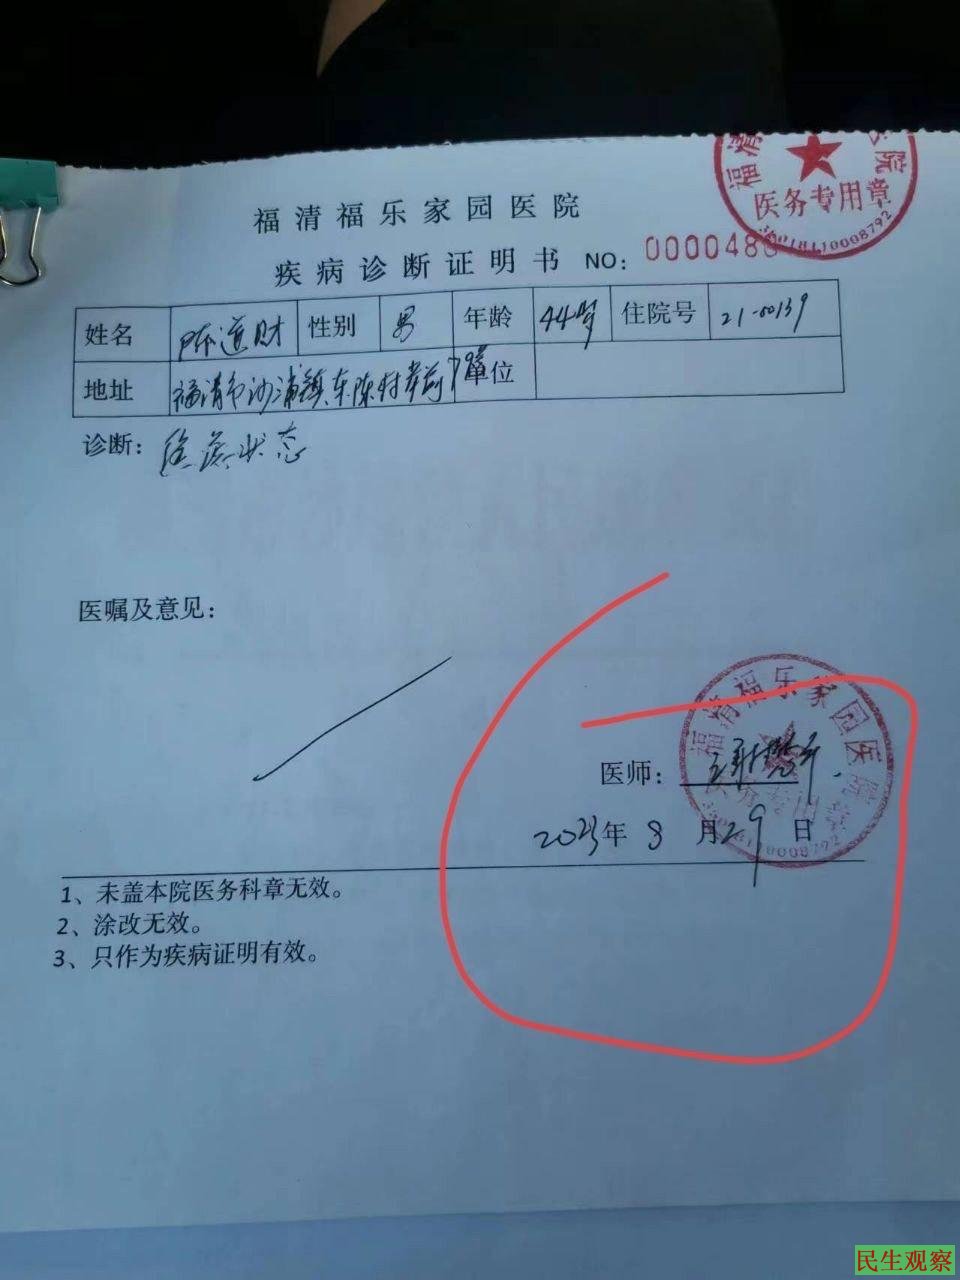 福清 院
医务专用章
福清福乐家园医院
疾病诊断证明书 NO: 000048
姓名 陈道财 性别 男 年龄 44岁 住院号 21-00139
地址 福清市沙浦镇东陈村 单位
诊断: 状态
医嘱及意见:
福清福乐家园医院
医师:
2023年8月29日
1、未盖本院医务科章无效。
2、涂改无效。
3、只作为疾病证明有效。
民生观察